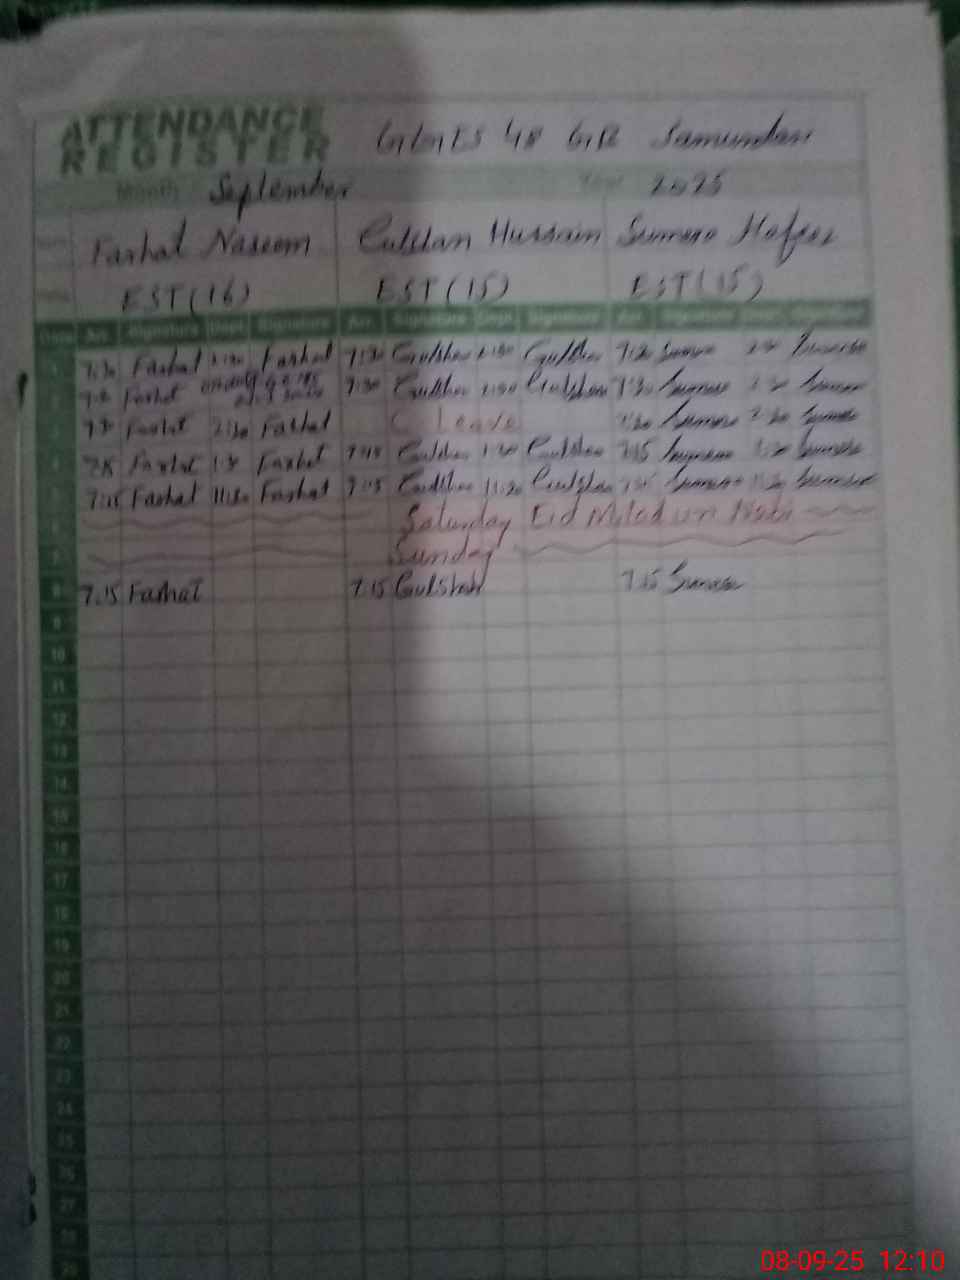 ATTENDANCE
REGISTER
GGES 48 GB Samundari
Month September Year 2025
Farhat Naseem Gulshan Hussain Sumera Hafeez
EST (16) EST (15) EST (15)
Date Arr. Signature Dept. Signature Arr. Signature Dept. Signature Arr. Signature Dept. Signature
1 7:30 Farhat 1:30 Farhat 7:30 Gulshan 1:30 Gulshan 7:30 Sumera 1:30 Sumera
2 Farhat 7:30 Gulshan 1:30 Gulshan 7:30 Sumera 1:30 Sumera
3 Farhat 1:30 Farhat C. Leave 7:30 Sumera 1:30 Sumera
4 7:15 Farhat 1:30 Farhat 7:15 Gulshan 1:30 Gulshan 7:15 Sumera 1:30 Sumera
5 7:15 Farhat 11:30 Farhat 7:15 Gulshan 11:30 Gulshan 7:15 Sumera 11:30 Sumera
6 Saturday Eid Milad un Nabi
7 Sunday
8 7:15 Farhat 7:15 Gulshan 7:15 Sumera
9
10
11
12
13
14
15
16
17
18
19
20
21
22
23
24
25
26
27
28
29
08-09-25 12:10